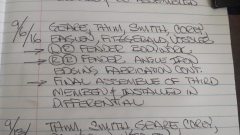 9/6/16 GEARE, THIM, SMITH, CORDY,
EAGLEN, FITZGERALD, VOSSLER
→ LR FENDER BODYWORK.
→ RR FENDER ANGLE IRON
EDGING FABRICATION CONT.
→ FINAL ASSEMBLE OF THIRD
MEMBER & INSTALLED IN
DIFFERENTIAL
THIM, SMITH, GEARE, CORDY,